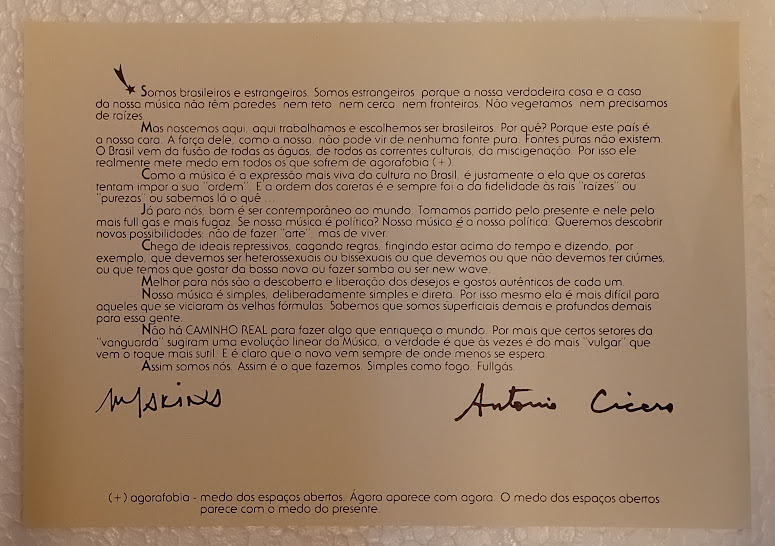 Somos brasileiros e estrangeiros. Somos estrangeiros porque a nossa verdadeira casa e a casa
da nossa música não têm paredes nem teto nem cerca nem fronteiras. Não vegetamos nem precisamos
de raízes
Mas nascemos aqui, aqui trabalhamos e escolhemos ser brasileiros. Por quê? Porque este país é
a nossa cara. A força dele, como a nossa, não pode vir de nenhuma fonte pura. Fontes puras não existem.
O Brasil vem da fusão de todas as águas, de todas as correntes culturais, da miscigenação. Por isso ele
realmente mete medo em todos os que sofrem de agorafobia (+).
Como a música é a expressão mais viva da cultura no Brasil, é justamente a ela que os caretas
tentam impor a sua "ordem". E a ordem dos caretas é e sempre foi a da fidelidade às tais "raízes" ou
"purezas" ou sabemos lá o quê ...
Já para nós, bom é ser contemporâneo ao mundo. Tomamos partido pelo presente e nele pelo
mais full gas e mais fugaz. Se nossa música é política? Nossa música é a nossa política. Queremos descobrir
novas possibilidades: não de fazer "arte", mas de viver.
Chega de ideais repressivos, cagando regras, fingindo estar acima do tempo e dizendo, por
exemplo, que devemos ser heterossexuais ou bissexuais ou que devemos ou que não devemos ter ciúmes,
ou que temos que gostar da bossa nova ou fazer samba ou ser new wave.
Melhor para nós são a descoberta e liberação dos desejos e gostos autênticos de cada um.
Nossa música é simples, deliberadamente simples e direta. Por isso mesmo ela é mais difícil para
aqueles que se viciaram às velhas fórmulas. Sabemos que somos superficiais demais e profundos demais
para essa gente.
Não há CAMINHO REAL para fazer algo que enriqueça o mundo. Por mais que certos setores da
"vanguarda" sugiram uma evolução linear da Música, a verdade é que às vezes é do mais "vulgar" que
vem o toque mais sutil. E é claro que o novo vem sempre de onde menos se espera.
Assim somos nós. Assim é o que fazemos. Simples como fogo. Fullgás.
Antonio Cicero
(+) agorafobia - medo dos espaços abertos. Ágora aparece com agora. O medo dos espaços abertos
parece com o medo do presente.